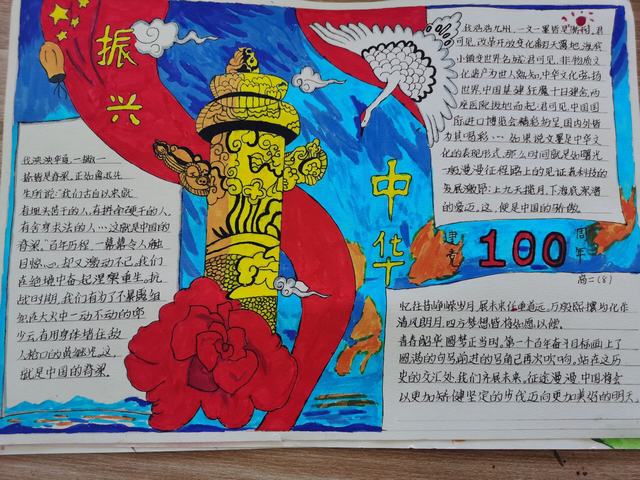 振兴
中华
我泱泱华夏,一撇一
捺皆是脊梁。正如鲁迅先
生所说:"我们古自以来就
有埋头苦干的人,有拼命硬干的人,
有舍身求法的人…这就是中国的
脊梁。"百年历程,一幕幕令人触
目惊心,却又激动不已。我们
在绝境中奋起涅槃重生。抗
战时期,我们有为了不暴露
在大火中一动不动的邱
少云,有用身体堵在敌
人枪口的黄继光,这
就是中国的脊梁。
九州,一文一墨皆是
可见,改革开放变化翻天覆地,渔村
小镇变世界名城;君可见,非物质文
化遗产为世人熟知,中华文化荟扬
世界,中国基建狂魔十日建会,两
座医院拔地而起;君可见,中国国
际进口博览会精彩纷呈,国内外皆
为其喝彩…如果说文墨是中华文
化的表现形式,那么时间就是如曙光
一般漫漫征程路上的见证者,科技的
发展激昂:上九天揽月,下海底采潜
的爱迈,这,便是中国的骄傲。
建党
100
周年
高二(8)
忆往昔峥嵘岁月,展未来任重道远。万般熙攘均化作
清风朗月,四方梦想皆将如愿以偿。
青春韶华,圆梦正当时。第一个百年奋斗目标画上了
圆满的句号,前进的号角已再次吹响,站在这历
史的交汇处,我们齐展未来。征途漫漫,中国将会
以更加矫健坚定的步伐迈向更加美好的明天。